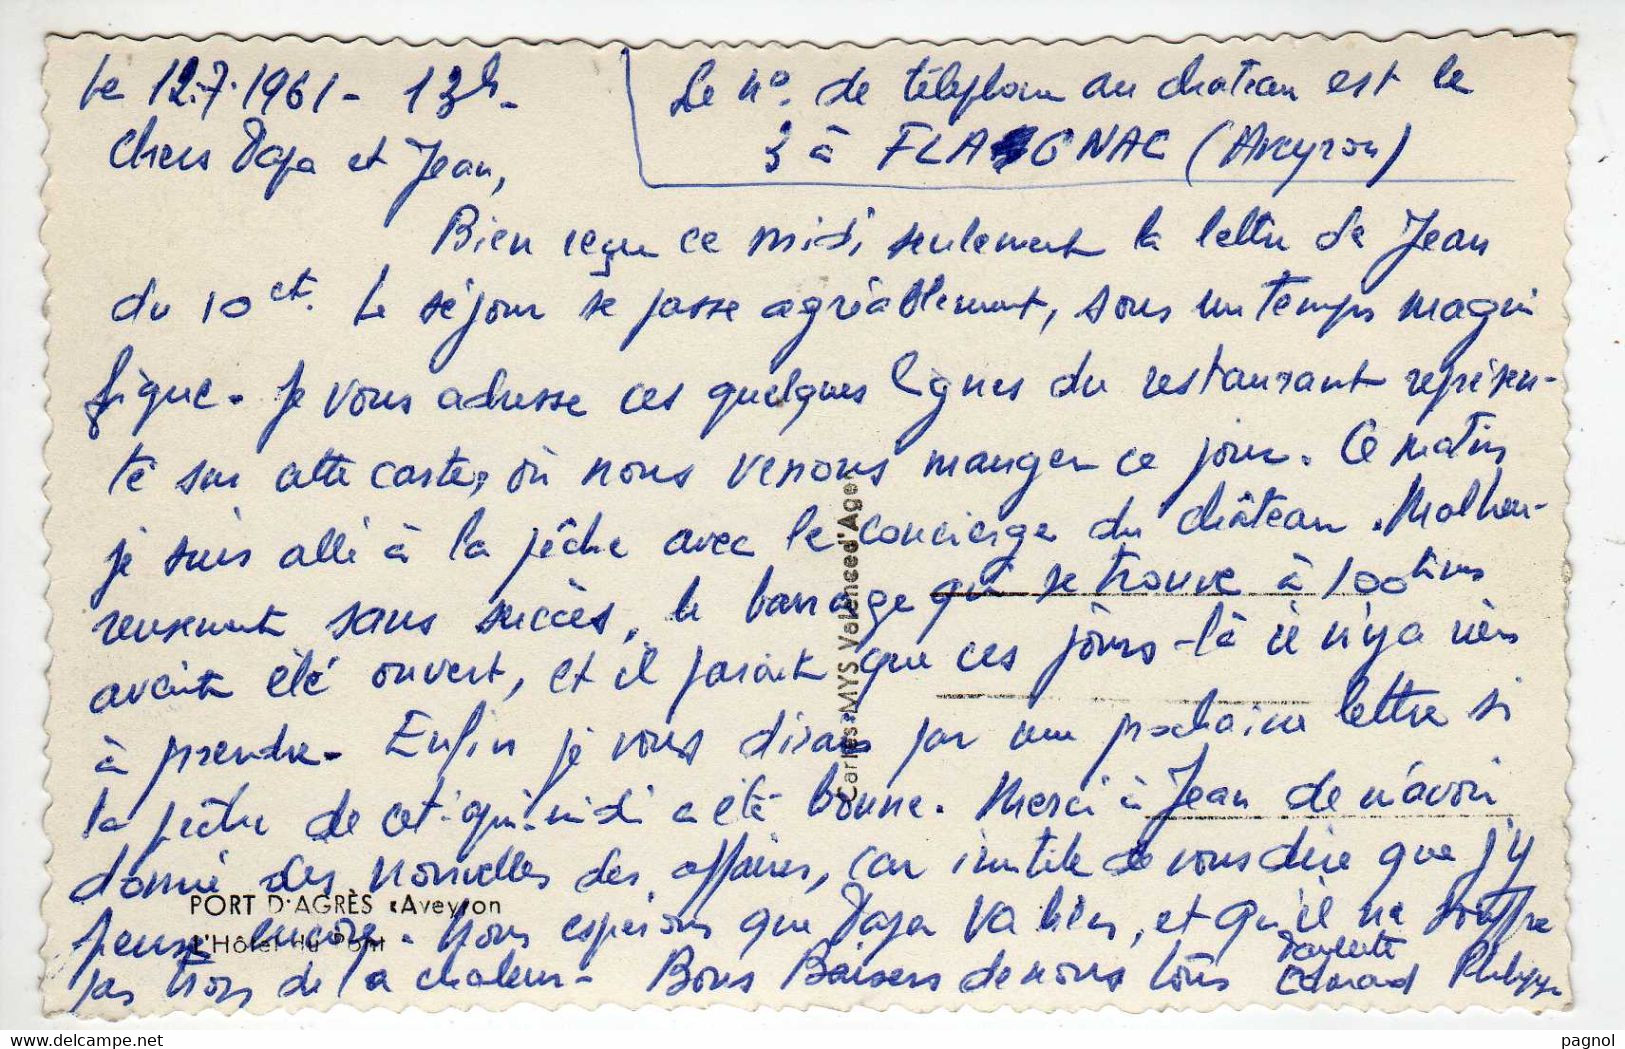 Le 12.7.1961 - 13h -
Le n° de téléphone au chateau est le
3 à FLAGNAC (Aveyron)
Chers Papa et Jean,
Bien reçu ce midi seulement la lettre de Jean
du 10 ct. Le séjour se passe agréablement, sous un temps magni
fique - Je vous adresse ces quelques lignes du restaurant représen-
té sur cette carte, où nous venons manger ce jour. Ce matin
je suis allé à la pêche avec le concierge du château. Malheu-
reusement sans succès, le barrage qui se trouve à 100 kms
avait été ouvert, et il parait que ces jours-là il n'y a rien
à prendre - Enfin je vous dirais par une prochaine lettre si
la pêche de cet-après-midi a été bonne. Merci à Jean de m'avoir
donné des nouvelles des affaires, car inutile de vous dire que j'y
pense encore. Nous espérons que Papa va bien, et qu'il ne souffre
pas trop de la chaleur - Bons Baisers de nous tous
Paulette
Edouard Philippe
Cartes "MYS" Valence d'Agen
PORT D'AGRÈS (Aveyron
L'Hôtel du Pont
www.delcampe.net
pagnol